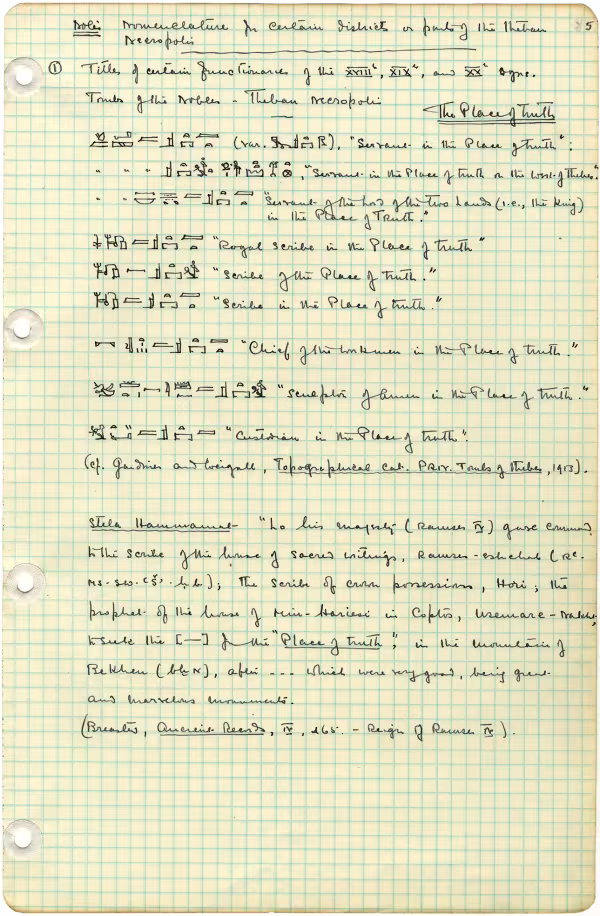 Note Nomenclature for certain districts or parts of the Theban 5
Necropolis
① Titles of certain functionaries of the XVIIIth, XIXth, and XXth Dyns.
Tombs of the Nobles - Theban Necropolis
The Place of truth
(var. ), "Servant in the Place of truth":
" " " , "Servant in the Place of truth on the West of Thebes."
" " "Servant of the Lord of the Two Lands (i.e., the King)
in the Place of Truth."
"Royal scribe in the Place of truth"
"Scribe of the Place of truth."
"Scribe in the Place of truth."
"Chief of the workmen in the Place of truth."
"Sculptor of Amen in the Place of truth."
"Custodian in the Place of truth".
(cf. Gardiner and Weigall, Topographical Cat. Priv. Tombs of Thebes, 1913).
Stela Hammamat - "Lo his majesty (Ramses IV) gave command
to the scribe of the house of sacred writings, Ramses-eshehab (Rc-
ms-sw. ); the scribe of crown possessions, Hori; the
prophet of the house of Min-Hariesi in Coptos, Usermare-Nakht,
to seek the [—] for the "Place of truth", in the mountain of
Bekhen (), after --- which were very good, being great
and marvelous monuments.
(Breasted, Ancient Records, IV, 465. - Reign of Ramses IV).